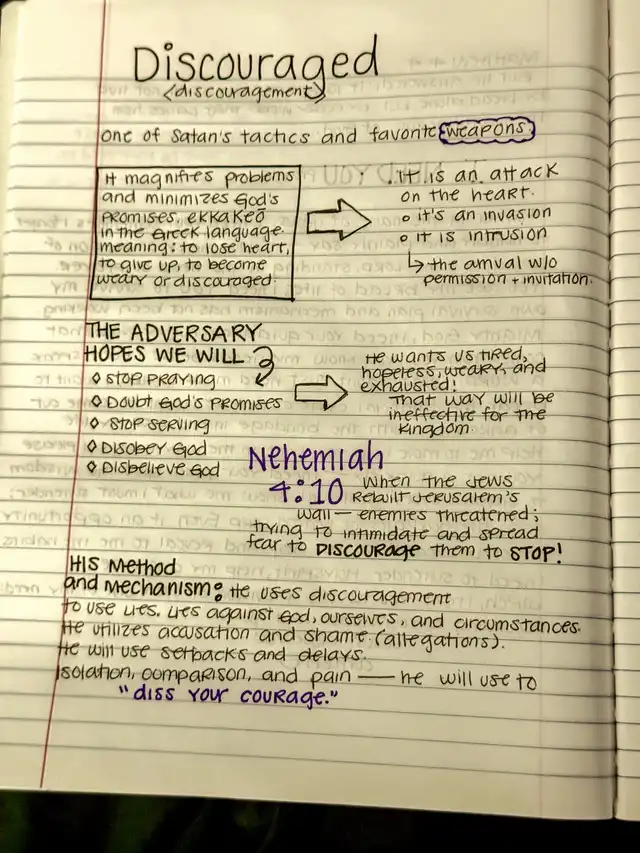 Discouraged
<discouragement>
one of Satan's tactics and favorite weapons
It magnifies problems
and minimizes God's
promises. ekkakeō
in the Greek language
meaning: to lose heart,
to give up, to become
weary or discouraged.
It is an attack
on the heart.
o it's an invasion
o it is intrusion
↳ the arrival w/o
permission + invitation.
THE ADVERSARY
HOPES WE WILL
◊ STOP PRAYING
◊ DOUBT GOD'S PROMISES
◊ STOP SERVING
◊ DISOBEY GOD
◊ DISBELIEVE GOD
He wants us tired,
hopeless, weary, and
exhausted!
That way will be
ineffective for the
kingdom.
Nehemiah
4:10 When the Jews
Rebuilt Jerusalem's
wall — enemies threatened;
trying to intimidate and spread
fear to DISCOURAGE them to STOP!
HIS METHOD
and MECHANISM: He uses discouragement
to use lies. Lies against God, ourselves, and circumstances.
He utilizes accusation and shame (allegations).
He will use setbacks and delays.
Isolation, comparison, and pain — he will use to
"diss your courage."